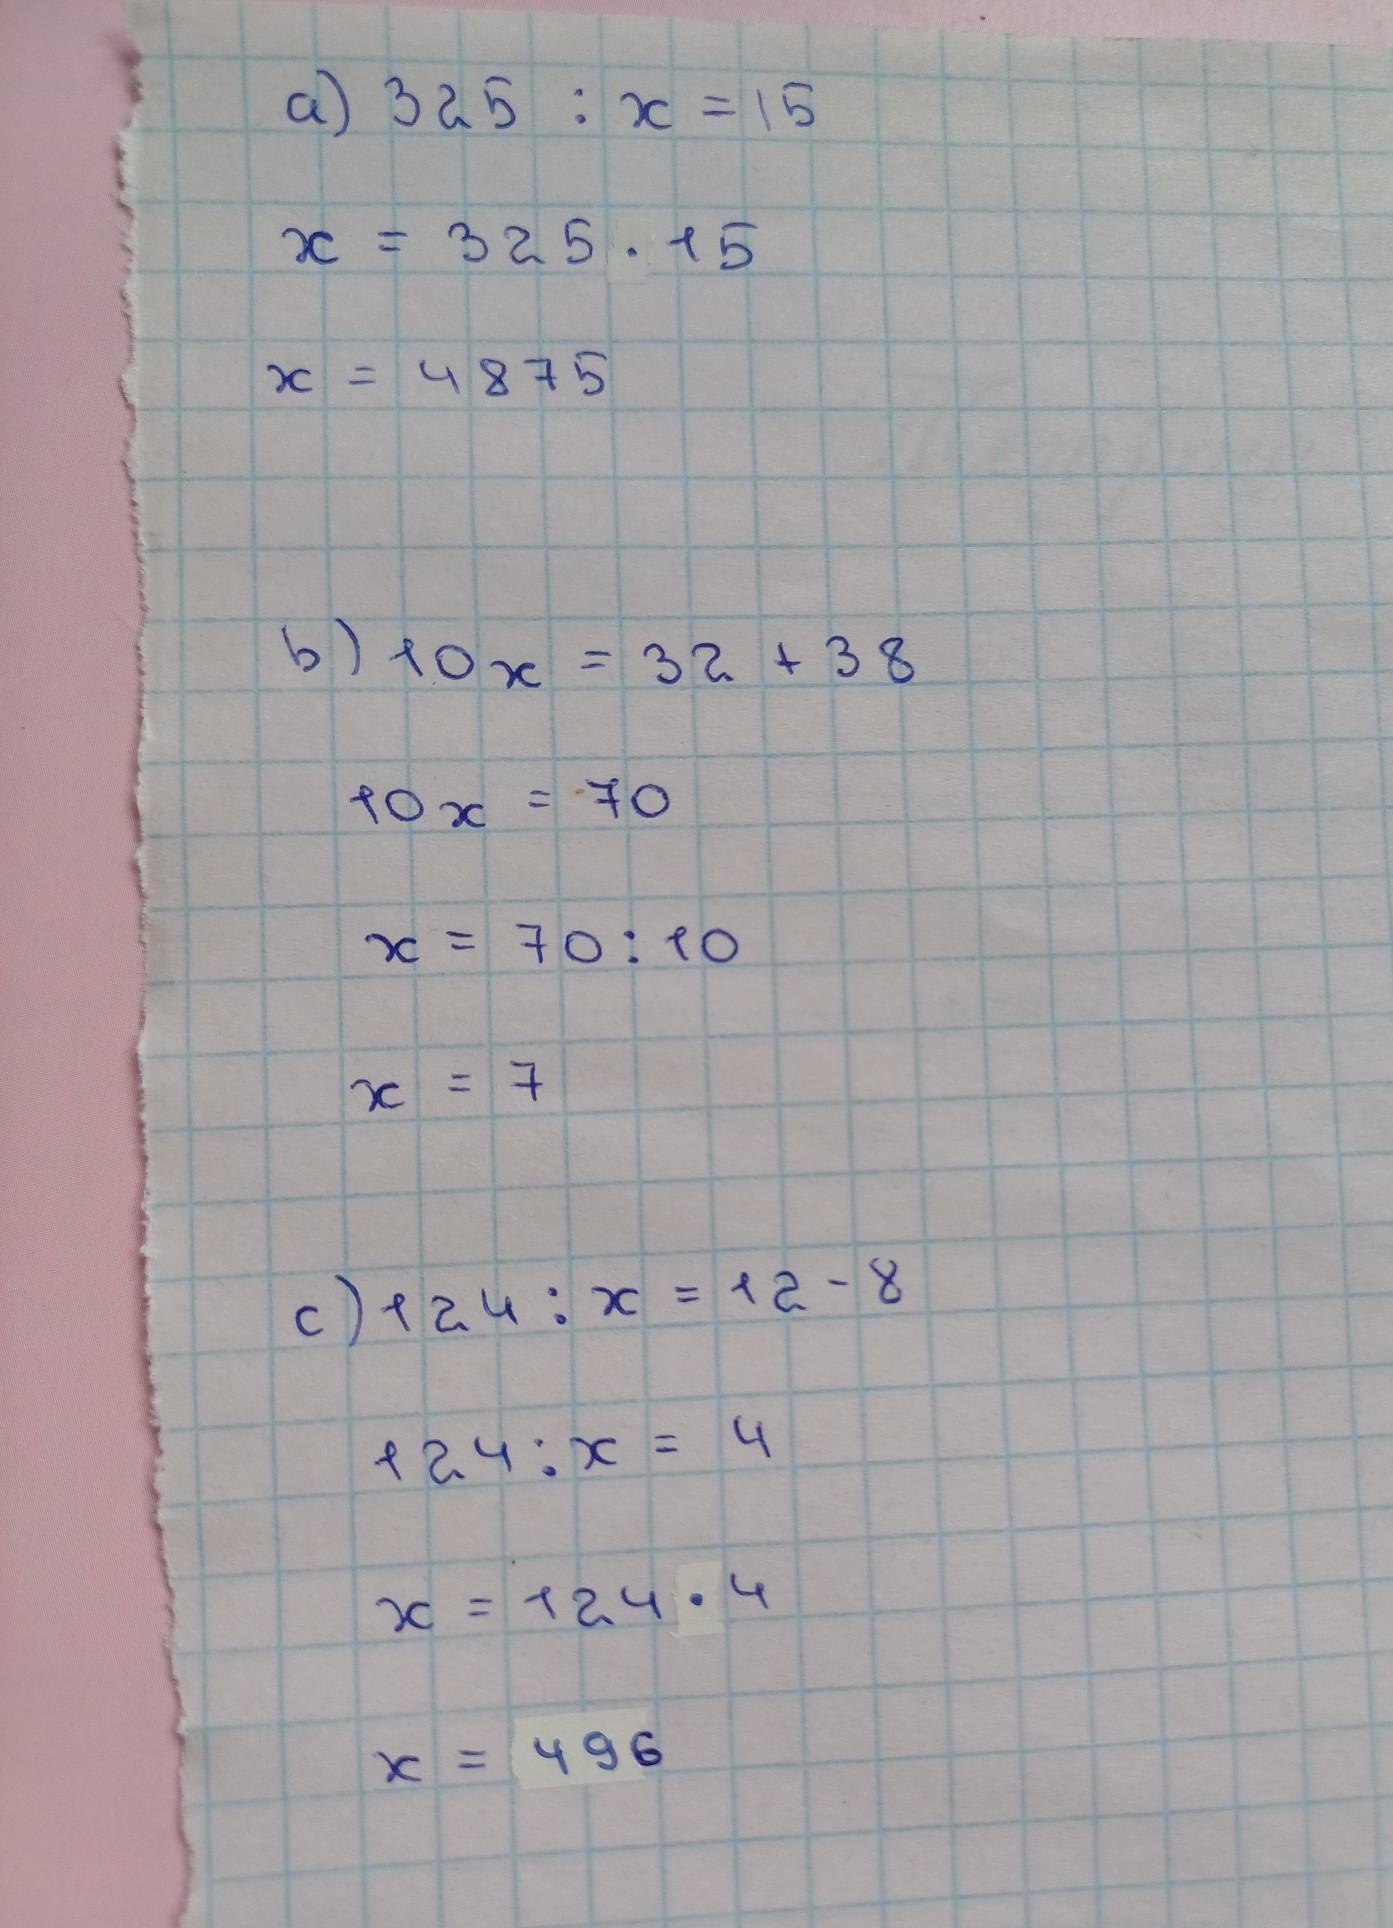 a) 325 : x = 15
x = 325 · 15
x = 4875
b) 10x = 32 + 38
10x = 70
x = 70 : 10
x = 7
c) 124 : x = 12 - 8
124 : x = 4
x = 124 · 4
x = 496